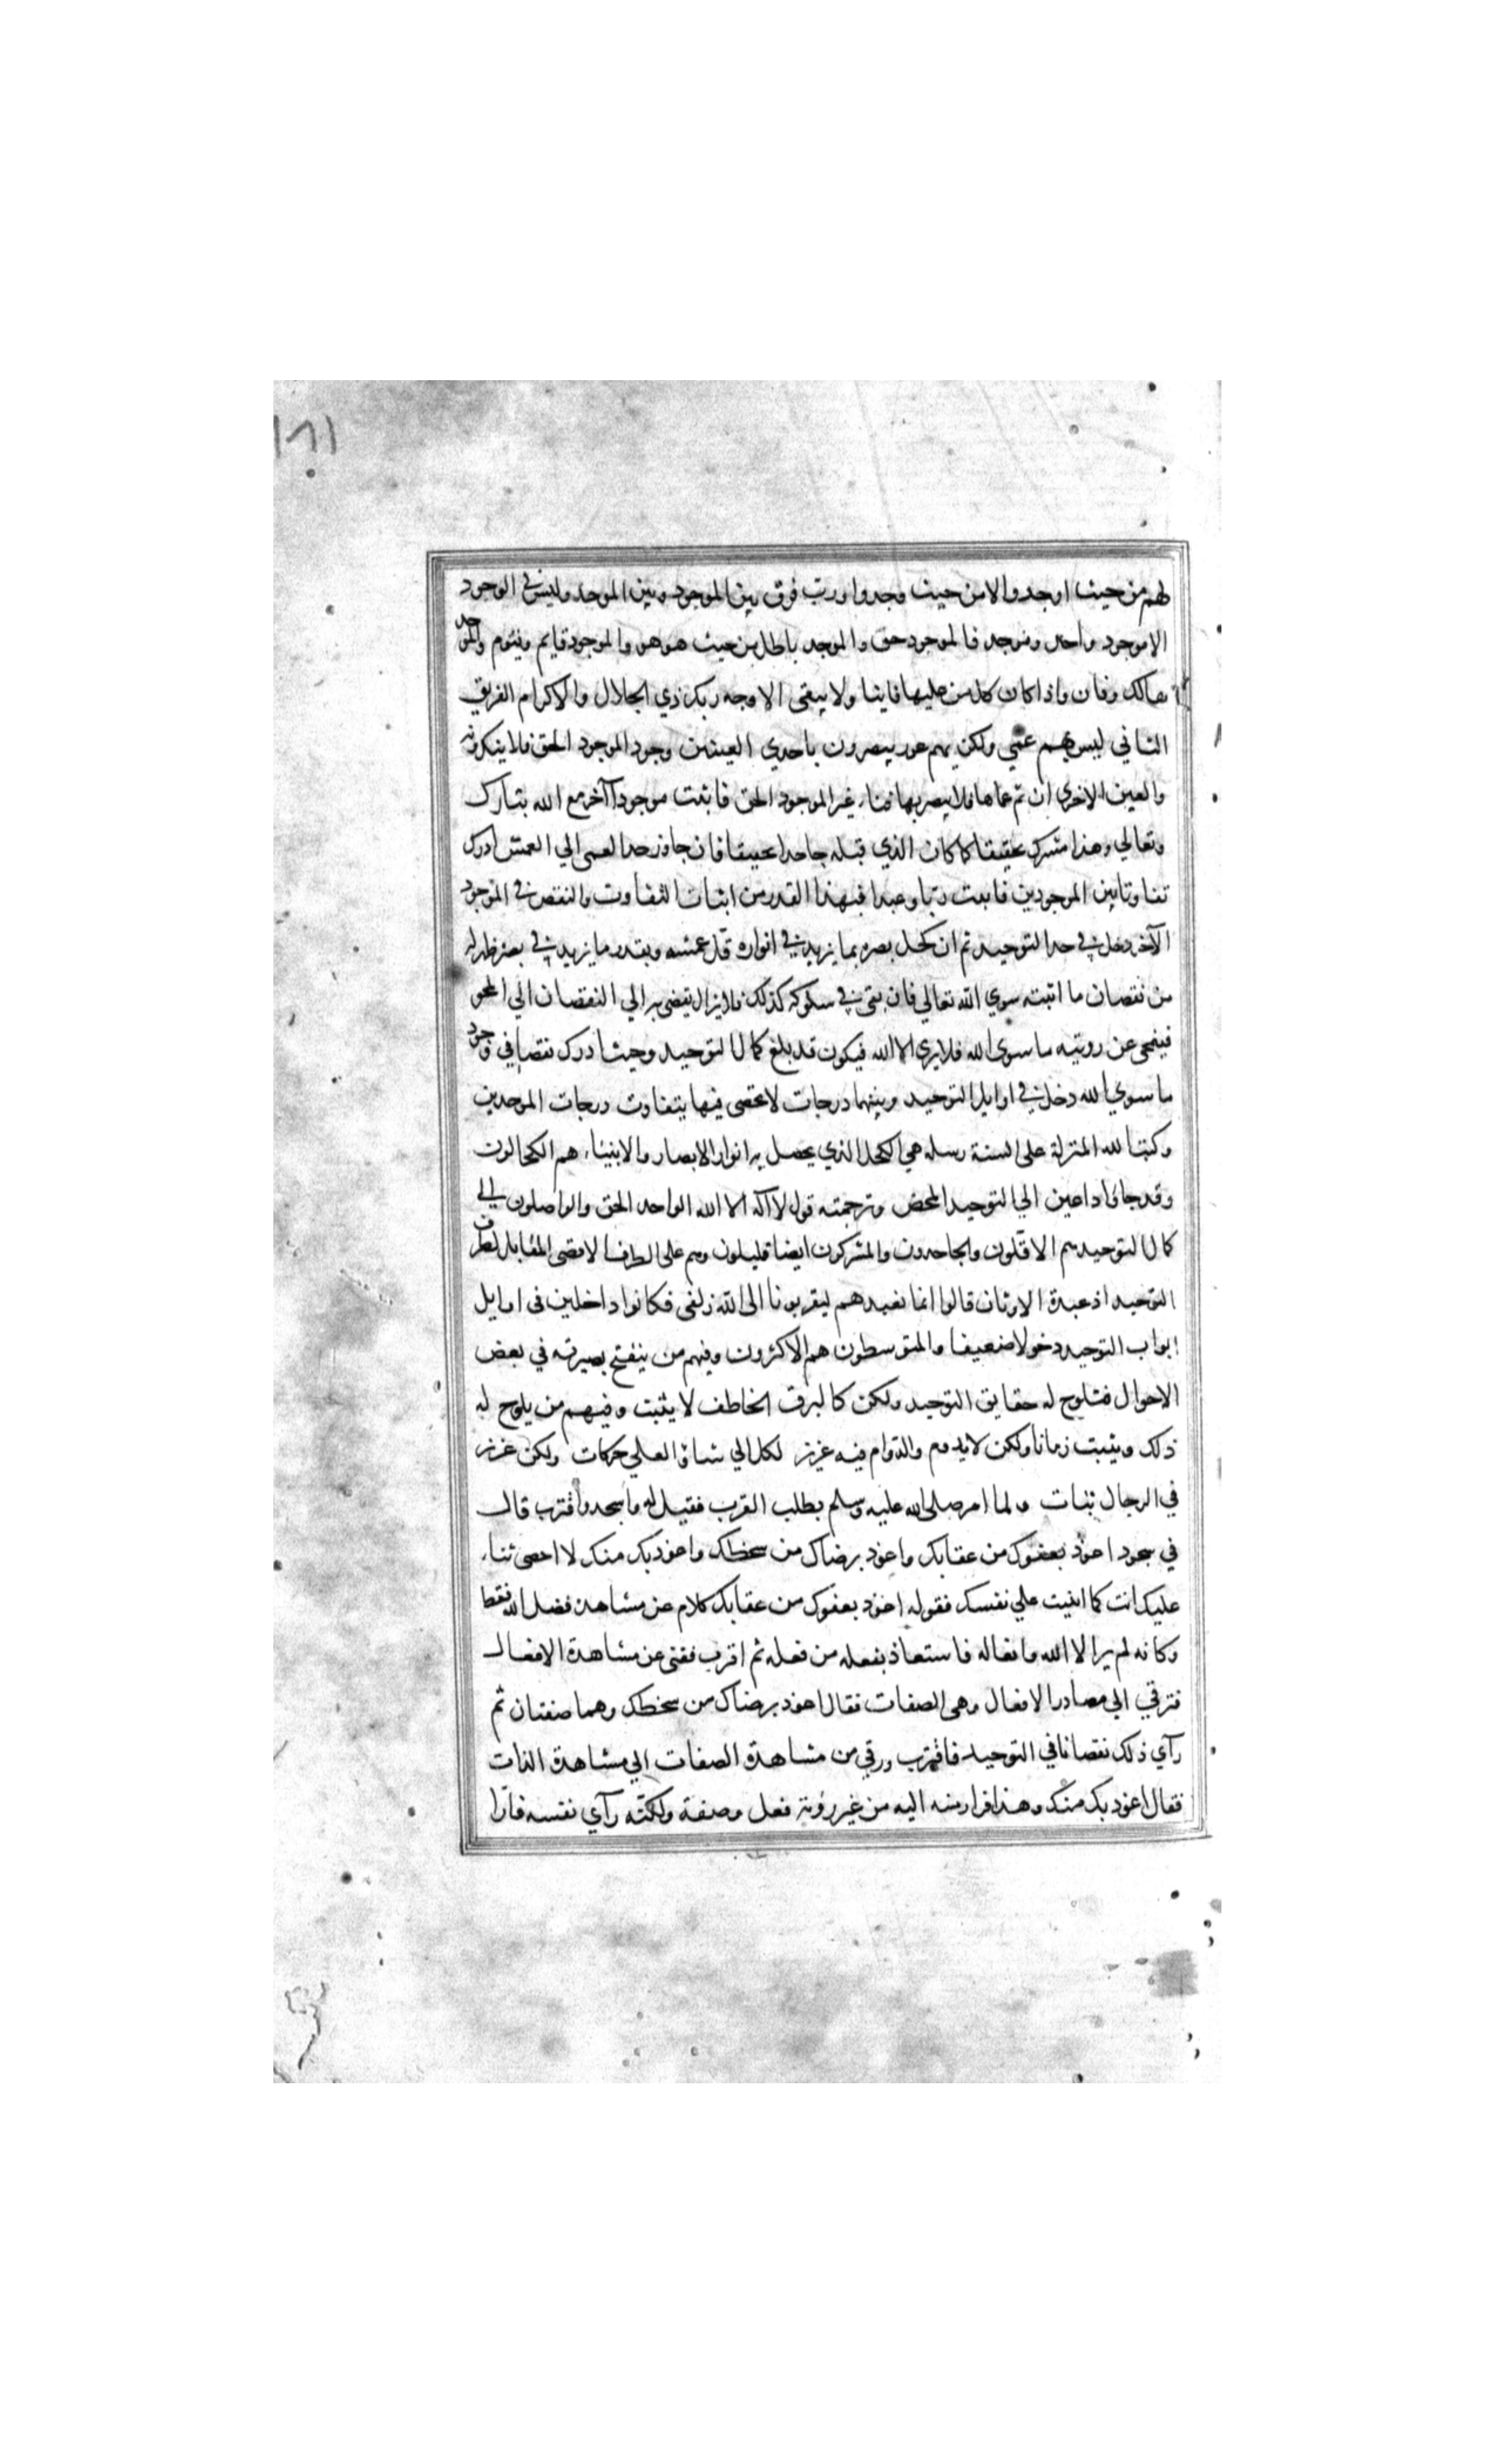 ١٨١
لهم من حيث اوجدوا لا من حيث وجدوا ورب فرق بين الموجود وبين الموجد وليس في الوجود
الا موجود واحد وموجد فالموجود حق والموجد باطل من حيث هو هو والموجود قايم وقيوم والموجد
هالك وفان واذا كان كل من عليها فانيا ولا يبقى الا وجه ربك ذي الجلال والاكرام الفريق
الثاني ليس بهم عمي ولكن بهم عور يبصرون باحدي العينين وجود الموجود الحق فلا ينكرونه
والعين الاخري ان تم عماها فلا يبصر بها فناء غير الموجود الحق فاثبت موجودا آخر مع الله تبارك
وتعالي وهذا مشرك تحقيقا كما كان الذي قبله جاحدا تحقيقا فان جاوز حد العمى الي العمش ادرك
تفاوتا بين الموجودين فاثبت ربا وعبدا فبهذا القدر من اثبات التفاوت والنقص في الموجود
الآخر دخل في حد التوحيد ثم ان كحل بصره بما يزيد في انواره قل عمشه وبقدر ما يزيد في بصره ظهر له
من نقصان ما اثبته سوي الله تعالي فان بقي في سلوكه كذلك فلا يزال يفضى به الي النقصان الي المحو
فينمحى عن رويته ما سوى الله فلا يرى الا الله فيكون قد بلغ كمال التوحيد وحيث ادرك نقصا في وجود
ما سوي الله دخل في اوايل التوحيد وبينهما درجات لا تحصى فبها يتفاوت درجات الموحدين
وكتب الله المنزلة على السنة رسله هي الكحل الذي يحصل به انوار الابصار والانبياء هم الكحالون
وقد جاؤا داعين الي التوحيد المحض وترجمته قول لا اله الا الله الواحد الحق والواصلون الي
كمال التوحيد هم الاقلون والجاحدون والمشركون ايضا قليلون وهم على الطرف الاقصى المقابل لطرف
التوحيد اذ عبدة الاوثان قالوا انما نعبدهم ليقربونا الى الله زلفى فكانوا داخلين في اوايل
ابواب التوحيد دخولا ضعيفا والمتوسطون هم الاكثرون وفيهم من ينفتح بصيرته في بعض
الاحوال فتلوح له حقايق التوحيد ولكن كالبرق الخاطف لا يثبت وفيهم من يلوح له
ذلك ويثبت زمانا ولكن لا يدوم والدوام فيه عزيز لكل الي شاؤ العلي حركات ولكن عزيز
في الرجال ثبات ولما امر صلى الله عليه وسلم بطلب القرب فقيل له واسجد واقترب قال
في سجود اعوذ بعفوك من عقابك واعوذ برضاك من سخطك واعوذ بك منك لا احصى ثناء
عليك انت كما اثنيت علي نفسك فقوله اعوذ بعفوك من عقابك كلام عن مشاهدة فضل الله فقط
وكانه لم ير الا الله وافعاله فاستعاذ بفعله من فعله ثم اقترب ففنى عن مشاهدة الافعال
فترقي الي مصادر الافعال وهى الصفات فقال اعوذ برضاك من سخطك وهما صفتان ثم
رآي ذلك نقصانا في التوحيد فاقترب ورقي من مشاهدة الصفات الي مشاهدة الذات
فقال اعوذ بك منك وهذا فرار منه اليه من غير رؤية فعل وصفة ولكنه رآي نفسه فارا